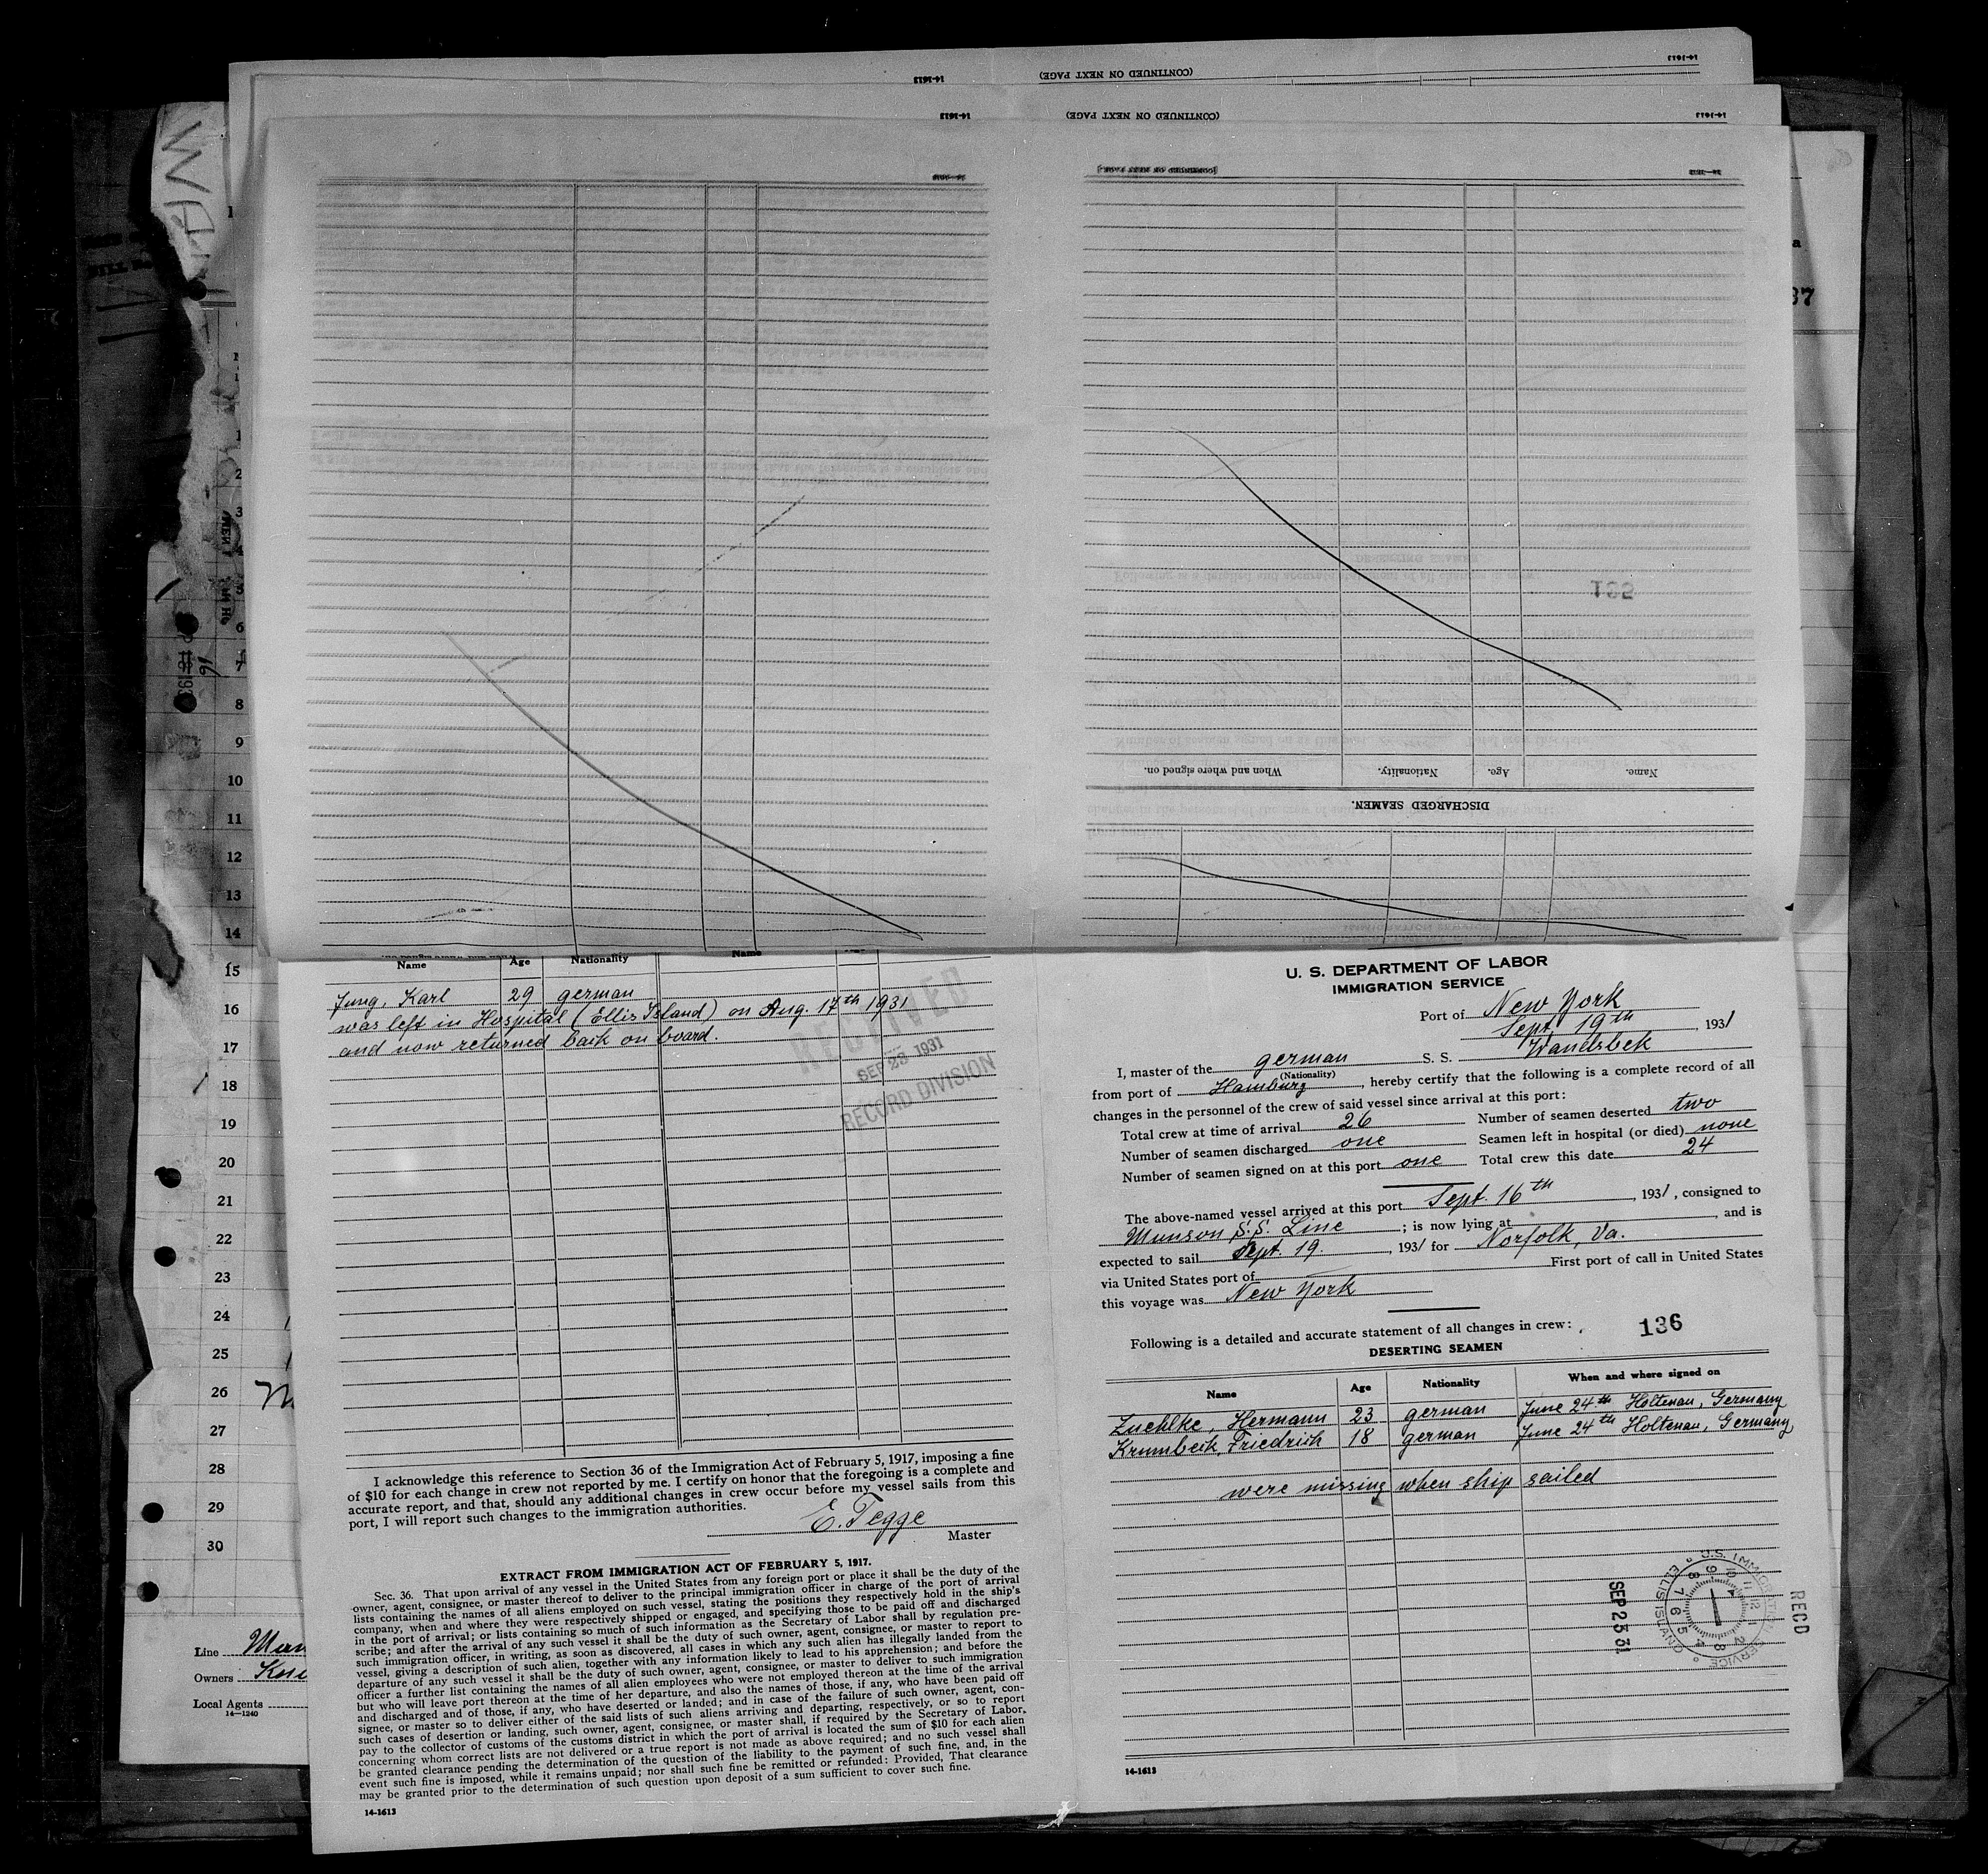 14-1613 (CONTINUED ON NEXT PAGE) 14-1613
14-1613 (CONTINUED ON NEXT PAGE) 14-1613
[CONTINUED ON NEXT PAGE.]
When and where signed on. Nationality. Age. Name.
DISCHARGED SEAMEN.
2
3
5
6
7
8
9
10
11
12
13
14
15
16
17
18
19
20
21
22
23
24
25
26
27
28
29
30
Line
Owners
Local Agents
14-1240
37
Name Age Nationality Name
Jung, Karl 29 german
was left in Hospital (Ellis Island) on Aug. 17th 1931
and now returned back on board.
RECEIVED
SEP 23 1931
RECORD DIVISION
I acknowledge this reference to Section 36 of the Immigration Act of February 5, 1917, imposing a fine
of $10 for each change in crew not reported by me. I certify on honor that the foregoing is a complete and
accurate report, and that, should any additional changes in crew occur before my vessel sails from this
port, I will report such changes to the immigration authorities.
E. Tegge
Master
EXTRACT FROM IMMIGRATION ACT OF FEBRUARY 5, 1917.
Sec. 36. That upon arrival of any vessel in the United States from any foreign port or place it shall be the duty of the
owner, agent, consignee, or master thereof to deliver to the principal immigration officer in charge of the port of arrival
lists containing the names of all aliens employed on such vessel, stating the positions they respectively hold in the ship's
company, when and where they were respectively shipped or engaged, and specifying those to be paid off and discharged
in the port of arrival; or lists containing so much of such information as the Secretary of Labor shall by regulation pre-
scribe; and after the arrival of any such vessel it shall be the duty of such owner, agent, consignee, or master to report to
such immigration officer, in writing, as soon as discovered, all cases in which any such alien has illegally landed from the
vessel, giving a description of such alien, together with any information likely to lead to his apprehension; and before the
departure of any such vessel it shall be the duty of such owner, agent, consignee, or master to deliver to such immigration
officer a further list containing the names of all alien employees who were not employed thereon at the time of the arrival
but who will leave port thereon at the time of her departure, and also the names of those, if any, who have been paid off
and discharged and of those, if any, who have deserted or landed; and in case of the failure of such owner, agent, con-
signee, or master so to deliver either of the said lists of such aliens arriving and departing, respectively, or so to report
such cases of desertion or landing, such owner, agent, consignee, or master shall, if required by the Secretary of Labor,
pay to the collector of customs of the customs district in which the port of arrival is located the sum of $10 for each alien
concerning whom correct lists are not delivered or a true report is not made as above required; and no such vessel shall
be granted clearance pending the determination of the question of the liability to the payment of such fine, and, in the
event such fine is imposed, while it remains unpaid; nor shall such fine be remitted or refunded: Provided, That clearance
may be granted prior to the determination of such question upon deposit of a sum sufficient to cover such fine.
14-1613
U. S. DEPARTMENT OF LABOR
IMMIGRATION SERVICE
Port of New York
Sept. 19th, 1931
I, master of the german S. S. Wandsbek
(Nationality)
from port of Hamburg, hereby certify that the following is a complete record of all
changes in the personnel of the crew of said vessel since arrival at this port:
Total crew at time of arrival 26 Number of seamen deserted two
Number of seamen discharged one Seamen left in hospital (or died) none
Number of seamen signed on at this port one Total crew this date 24
The above-named vessel arrived at this port Sept. 16th, 1931, consigned to
Munson S.S. Line; is now lying at , and is
expected to sail Sept. 19., 1931 for Norfolk, Va.
via United States port of First port of call in United States
this voyage was New York
Following is a detailed and accurate statement of all changes in crew: 136
DESERTING SEAMEN
Name Age Nationality When and where signed on
Zuehlke, Hermann 23 german June 24th Holtenau, Germany
Krumbeck, Friedrich 18 german June 24th Holtenau, Germany
were missing when ship sailed
REC'D
U.S. IMMIGRATION SERVICE ELLIS ISLAND
SEP 25 31
14-1613